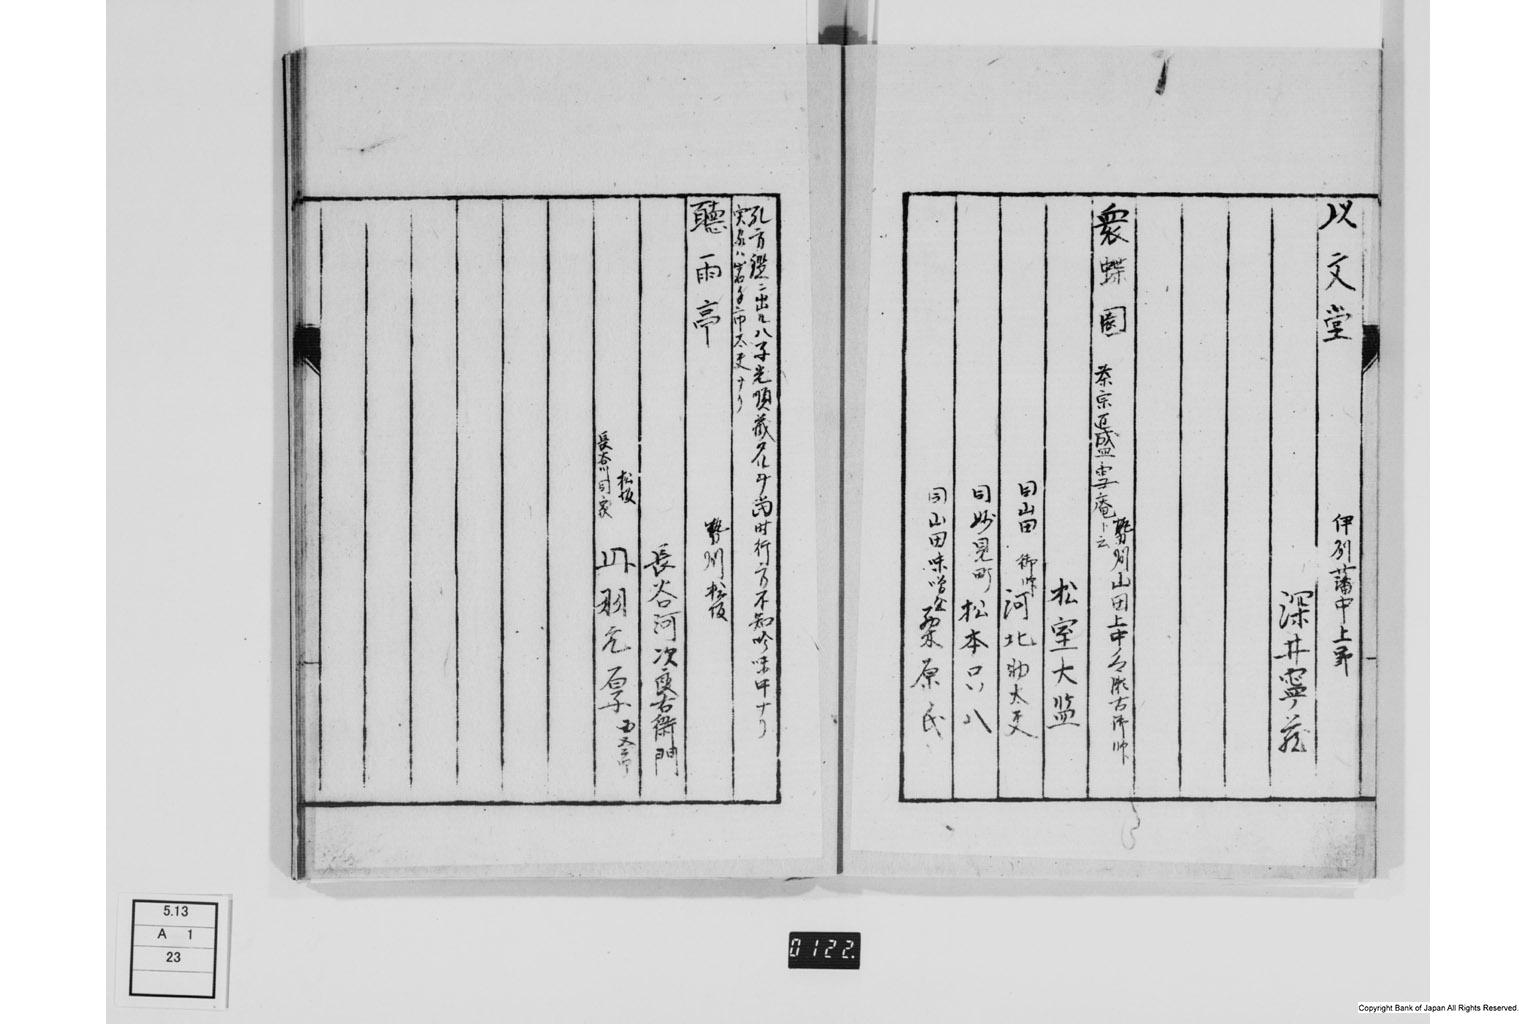 以文堂
伊州藩中上野
深井寧蔵
衆蝶園
茶宗匠盛雪庵ト云
勢州山田上中之郷古
松室大監
同山田
御師
河北助太夫
同妙見町
松本只八
同山田味噌
原氏
孔方鑑ニ出
光順蔵
当時行方不知吟味中ナリ
実名ハ岩手市太夫ナリ
聴雨亭
勢州松坂
長谷河次良右衛門
松坂
長谷川同家
丹羽元厚
Copyright Bank of Japan All Rights Reserved.
5.13
A 1
23
0122.